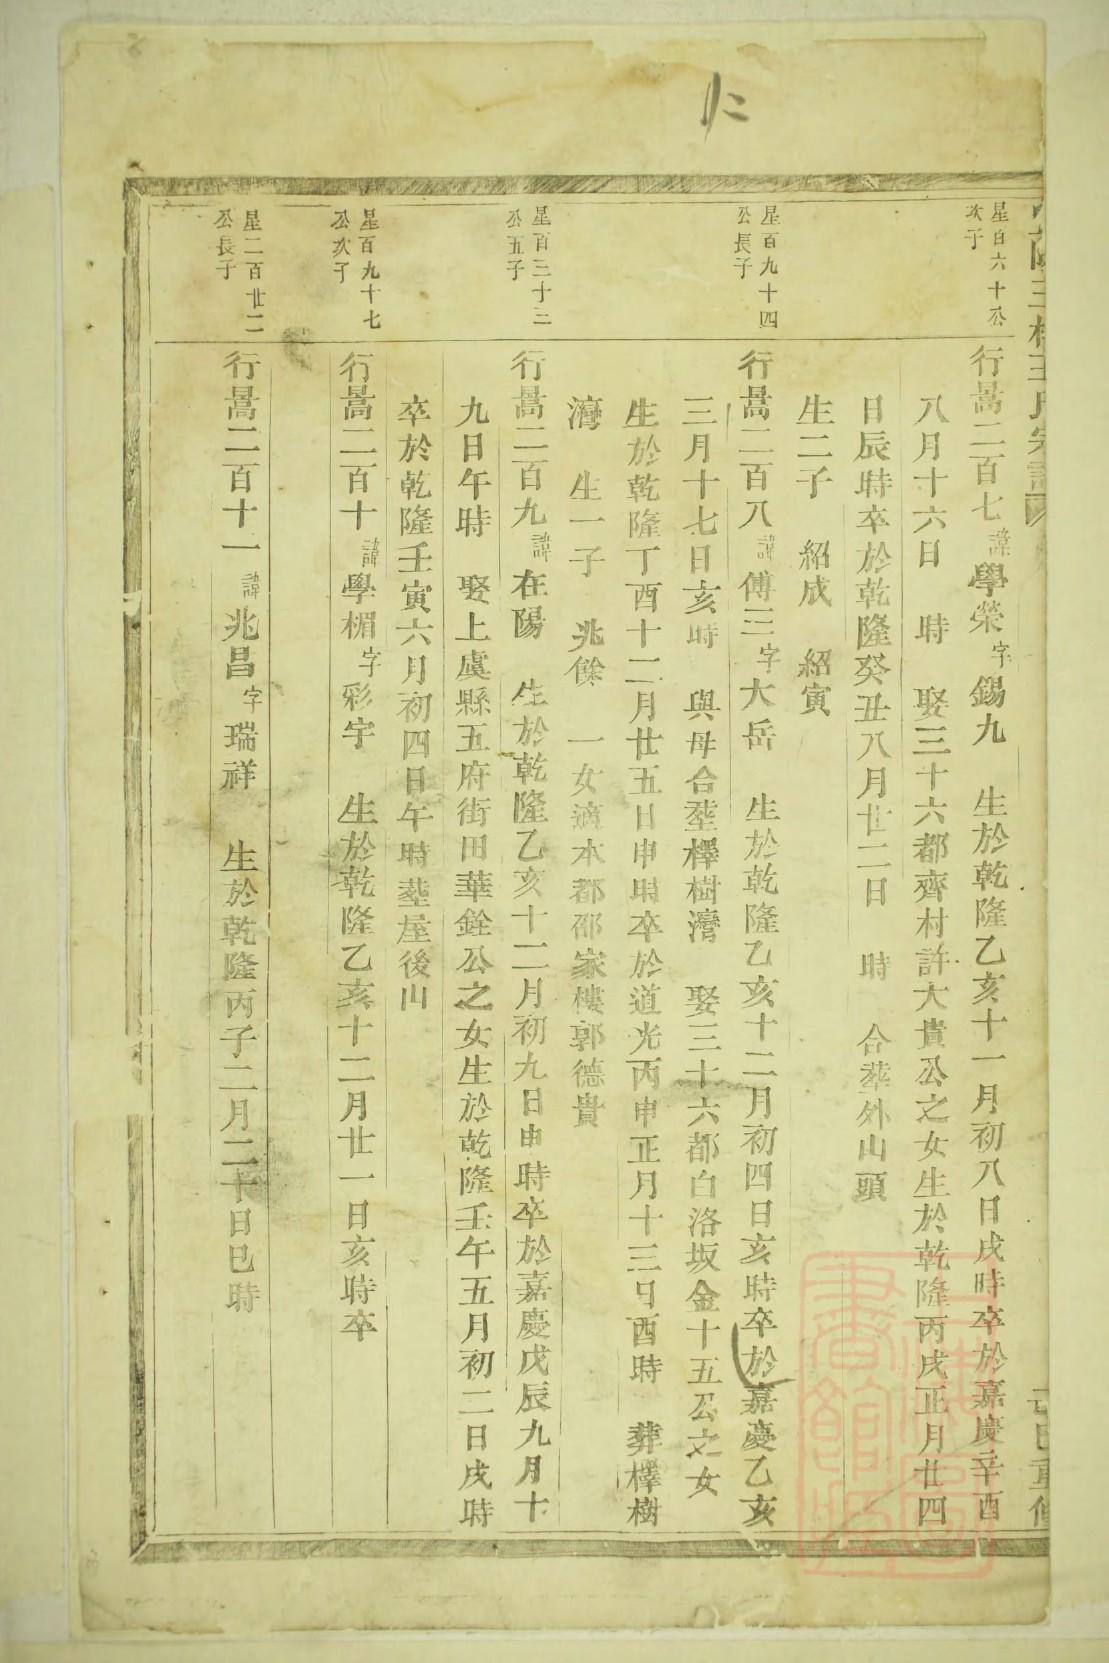 仁
王氏宗譜
星百六十公
次子
行暠二百七諱學榮字錫九　生於乾隆乙亥十一月初八日戌時卒於嘉慶辛酉
八月十六日　時　娶三十六都齊村許大貴公之女生於乾隆丙戌正月廿四
日辰時卒於乾隆癸丑八月廿二日　時　合塟外山頭
生二子　紹成　紹寅
星百九十四
公長子
行暠二百八諱傅三字大岳　生於乾隆乙亥十二月初四日亥時卒於嘉慶乙亥
三月十七日亥時　與母合塟檡樹灣　娶三十六都白洛坂金十五公之女
生於乾隆丁酉十二月廿五日申時卒於道光丙申正月十三日酉時　葬檡樹
灣　生一子　兆餘　一女適本都邵家樓郭德貴
星百三十三
公五子
行暠二百九諱在陽　生於乾隆乙亥十二月初九日申時卒於嘉慶戊辰九月十
九日午時　娶上虞縣五府街田華銓公之女生於乾隆壬午五月初二日戌時
卒於乾隆壬寅六月初四日午時塟屋後山
星百九十七
公次子
行暠二百十諱學楣字彩宇　生於乾隆乙亥十二月廿一日亥時卒
星二百廿二
公長子
行暠二百十一諱兆昌字瑞祥　生於乾隆丙子二月二十日巳時
重修